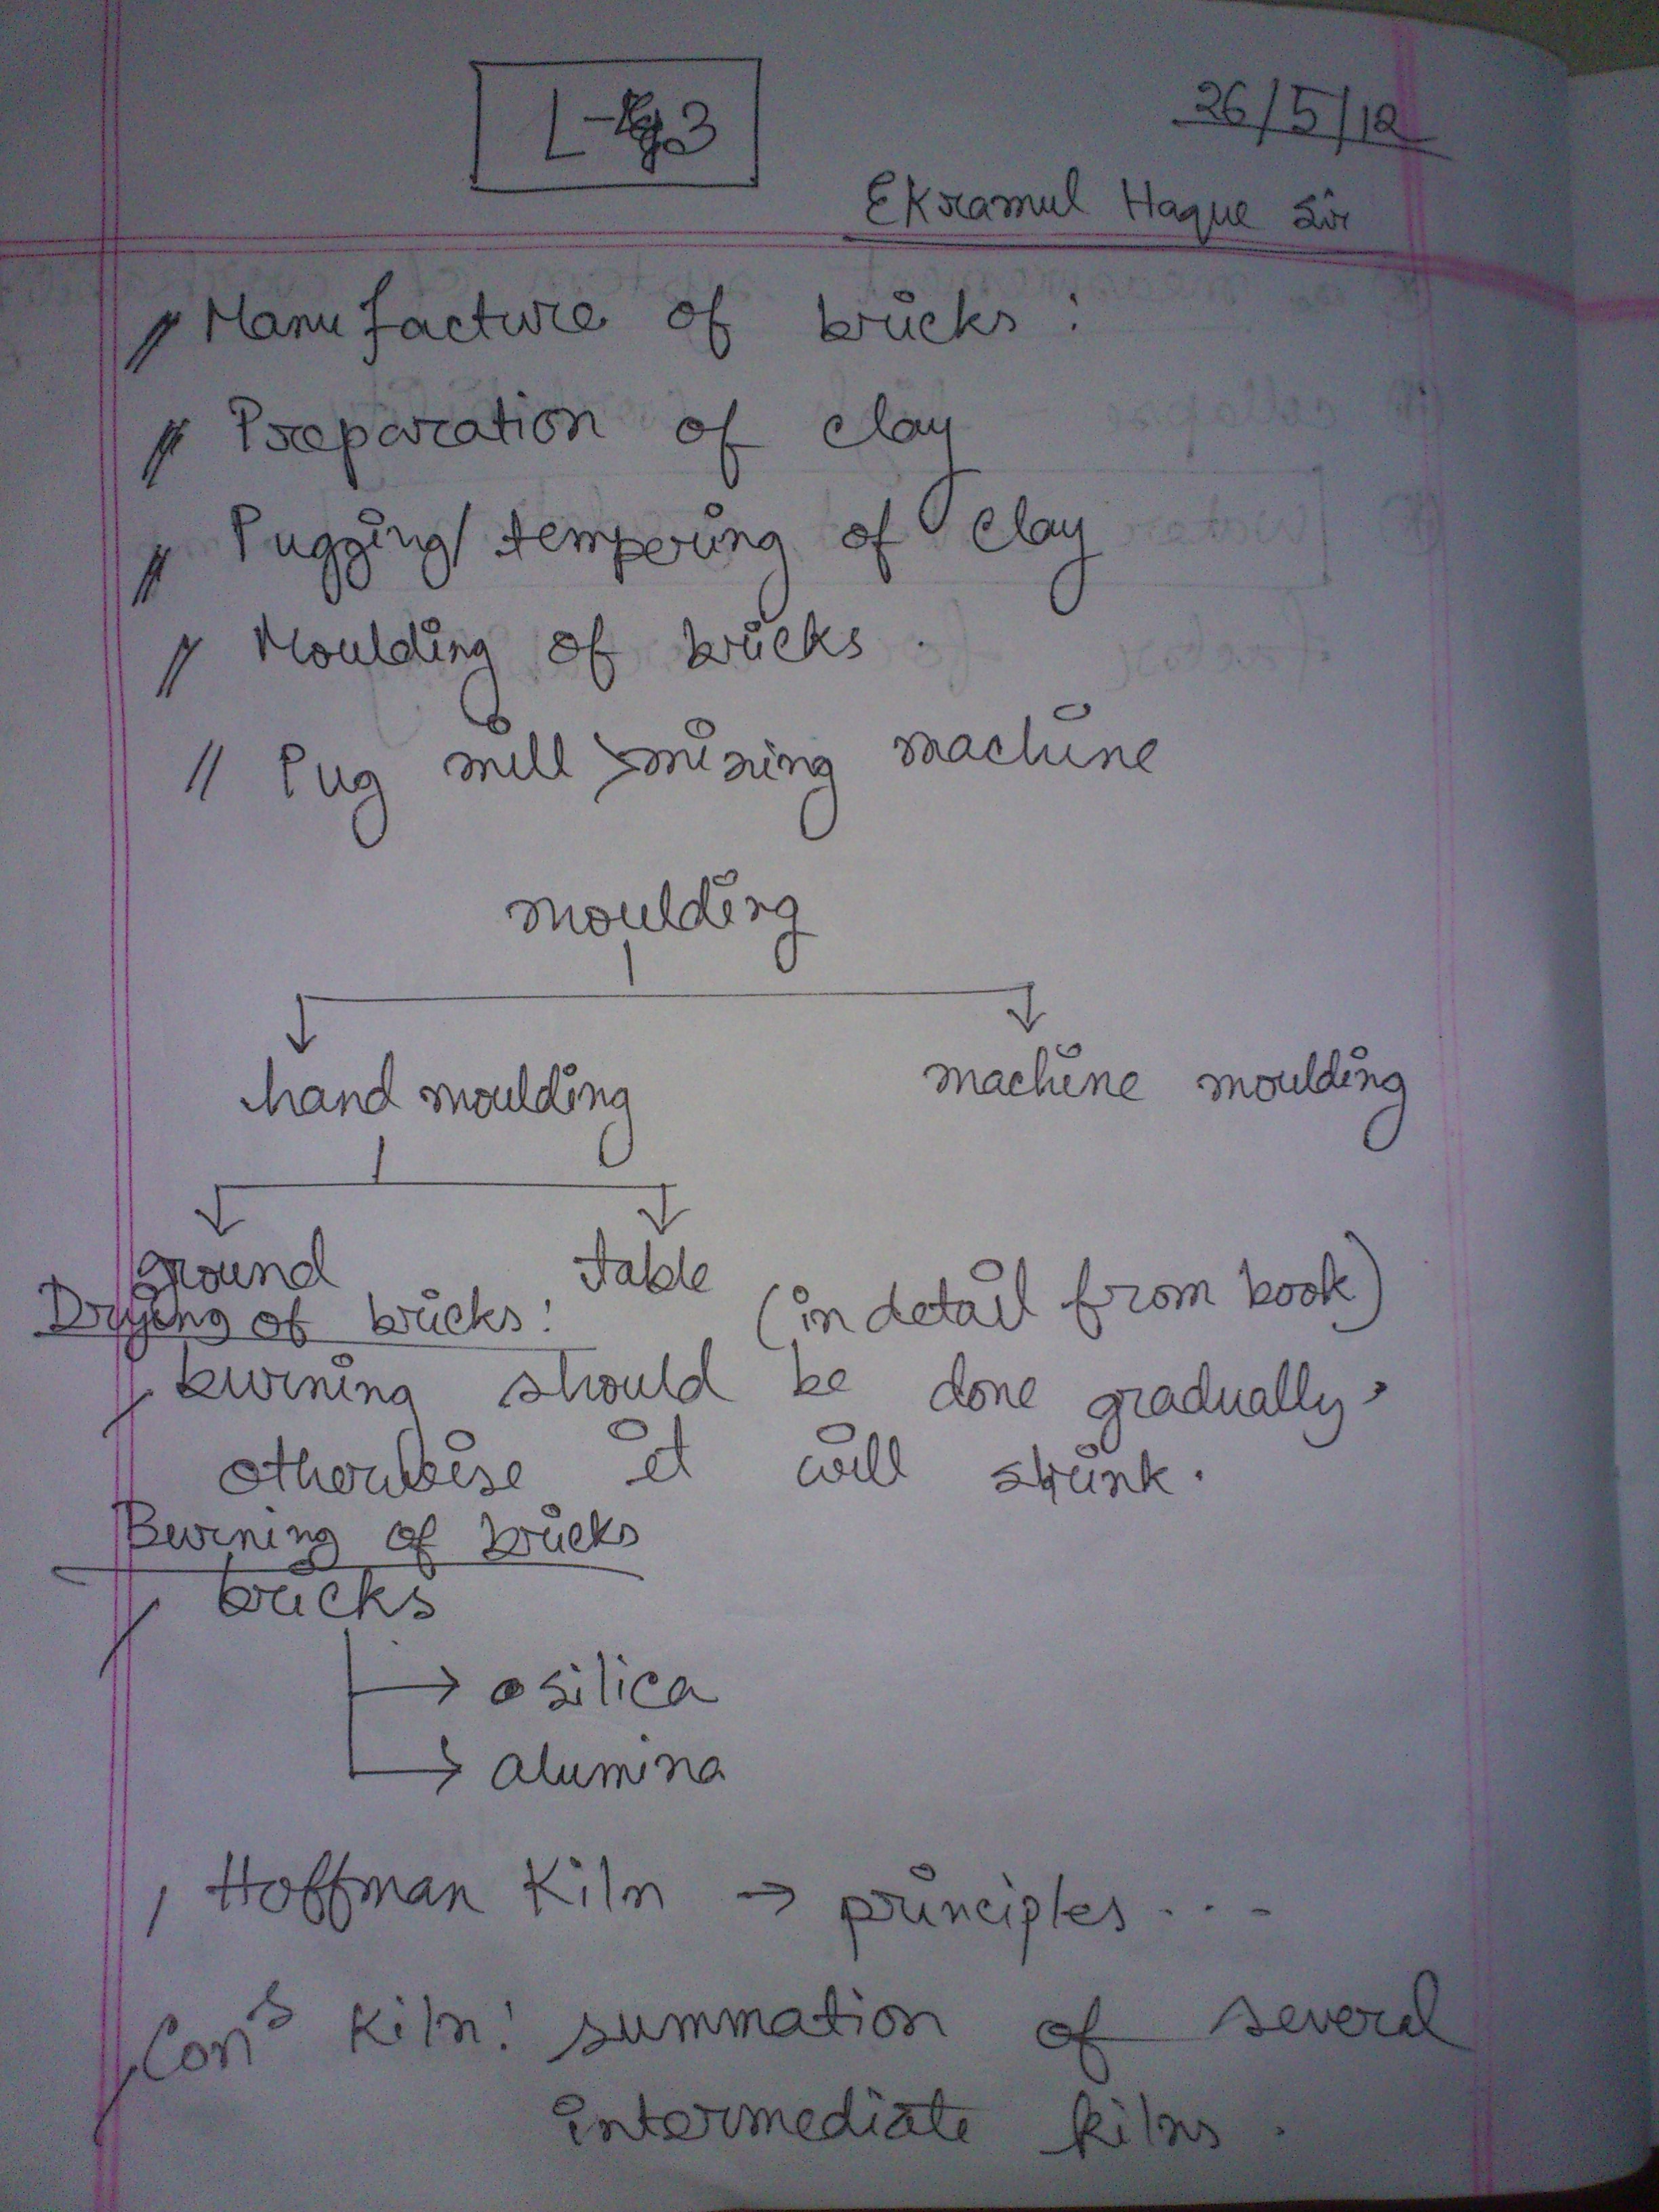 L-3
26/5/12
Ekramul Haque Sir
// Manufacture of bricks :
// Preparation of clay
// Pugging/tempering of clay
// Moulding of bricks .
// Pug mill > mixing machine
moulding
hand moulding machine moulding
ground table
Drying of bricks : (in detail from book)
burning should be done gradually,
otherwise it will
Burning of bricks
bricks
→ silica
→ alumina
Hoffman Kiln → principles . . . -
Conˢ Kiln : summation of several
intermediate kilns .